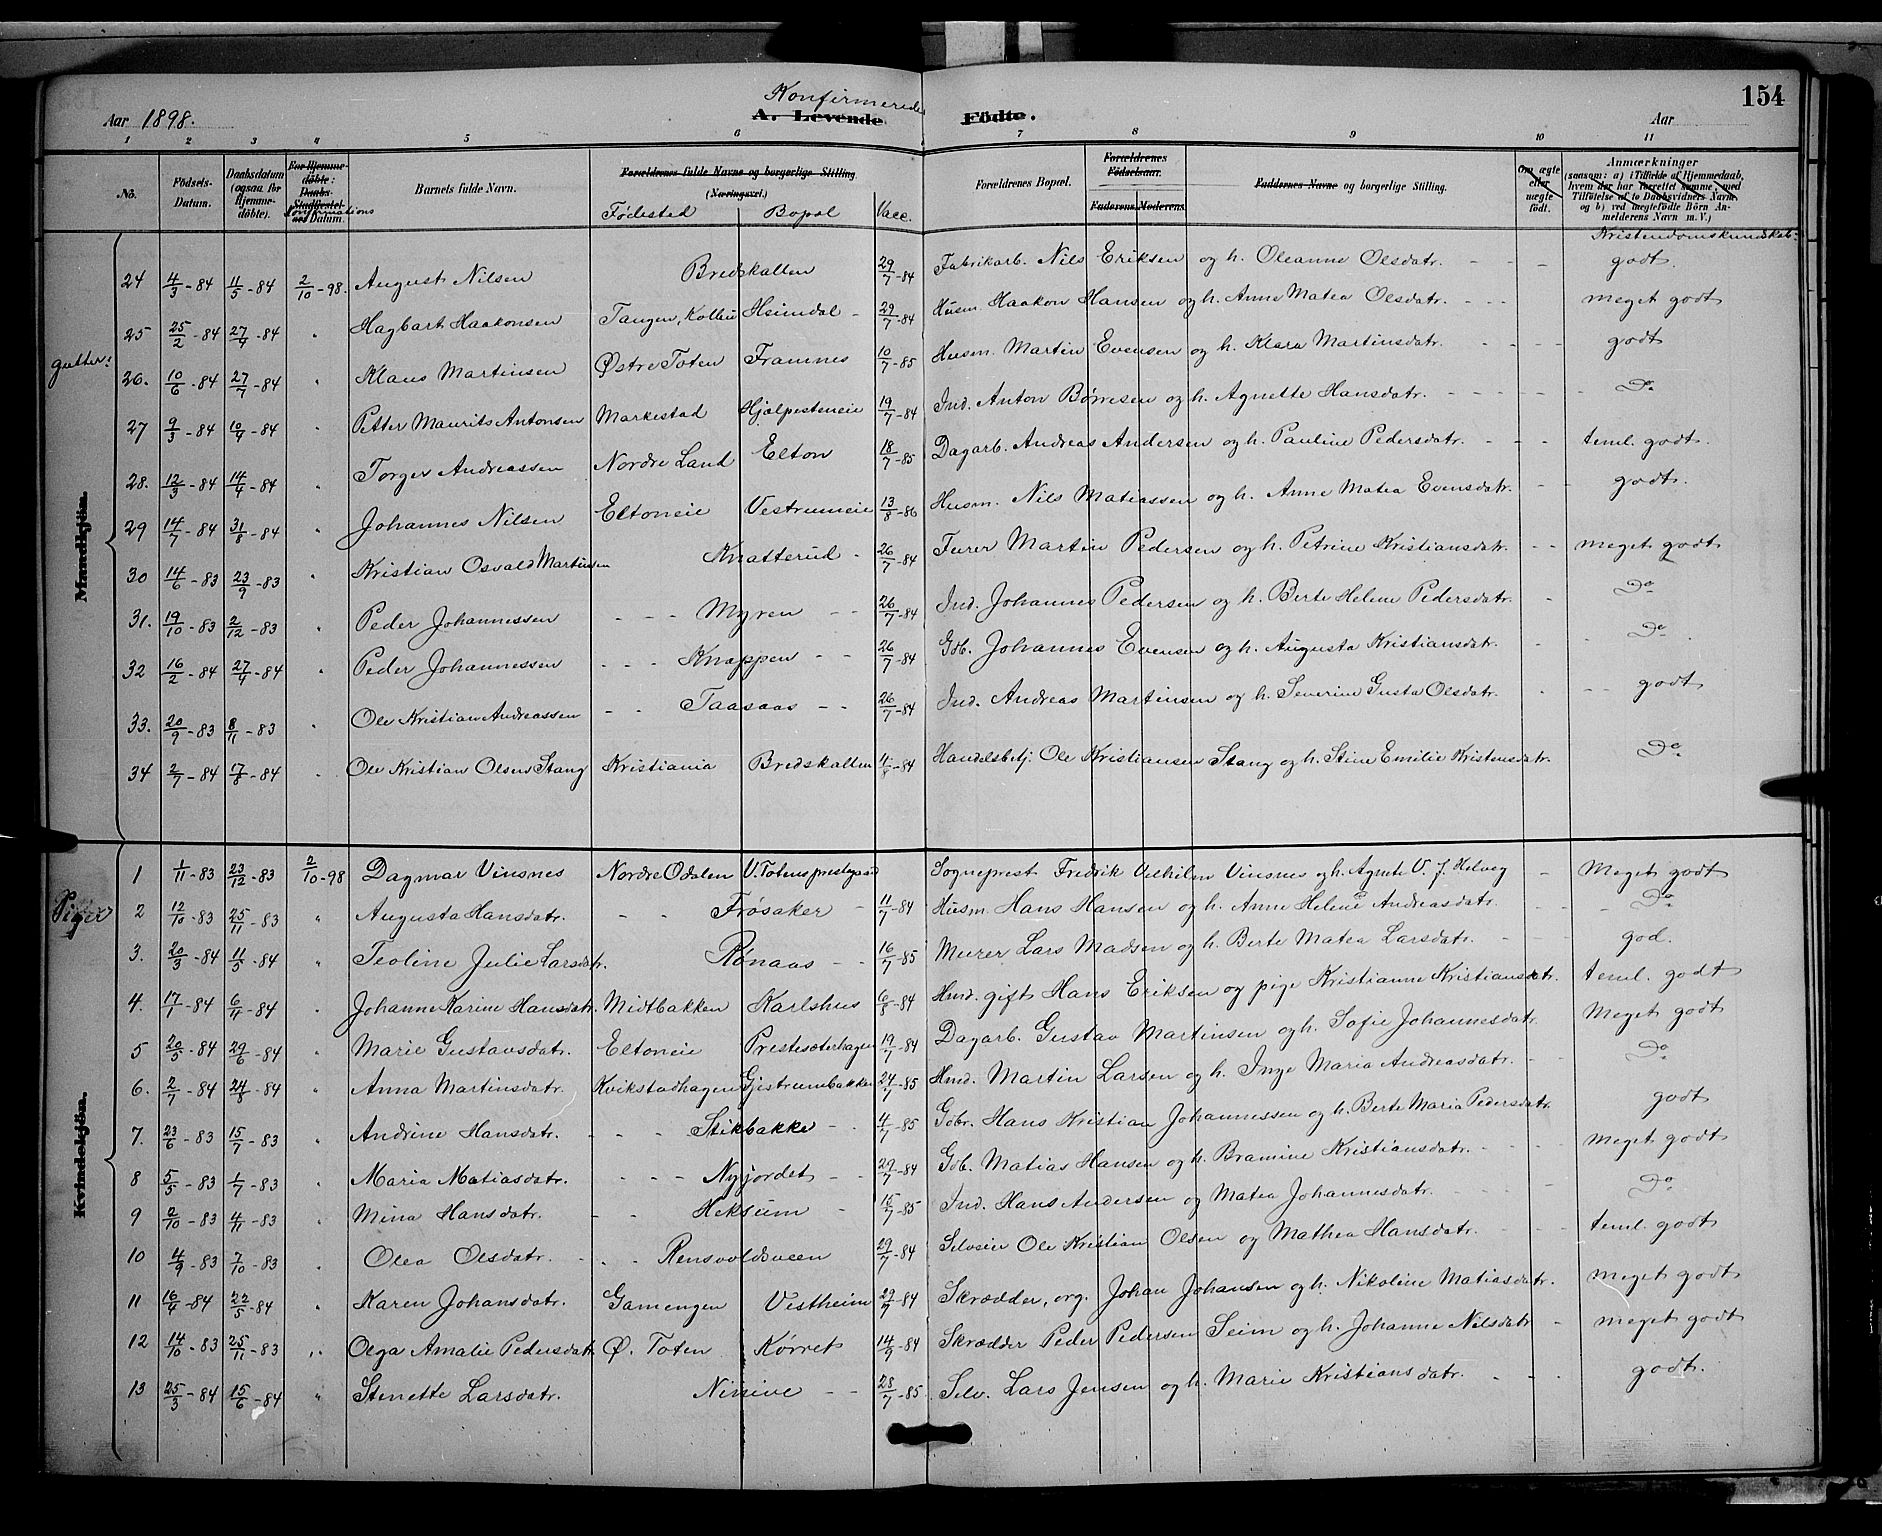 154
Konfirmerede
Aar 1898. A. Levende Födte. Aar
1 2 3 4 5 6 7 8 9 10 11
No. Födsels-Datum. Daabsdatum (ogsaa for Hjemme-döbte). For Hjemme-döbte: Daabs-Stadfæstel-ses Datum. Konfirmations Barnets fulde Navn. Forældrenes fulde Navne og borgerlige Stilling (Næringsvei.) Fødested Bopæl Vacc. Forældrenes Bopæl. Forældrenes Födselsaar. Faderens. Moderens. Faddernes Navne og borgerlige Stilling. Om ægte eller uægte födt. Anmærkninger (saasom: a) i Tilfælde af Hjemmedaab, hvem der har forrettet samme, med Tilföielse af to Daabsvidners Navne, og b) ved uegtefödte Börn An-melderens Navn m. V.)
Kristendomskundskab:
gutter:
Mandkjön.
24 4/3-84 11/5-84 2/10-98. August Nilsen Bredskallen 29/7-84 Fabrikarb. Nils Eriksen og h. Oleanne Olsdatr. - - - godt.
25 25/2-84 27/4-84 " Hagbart Haakonsen Tangen, Kolbu Heimdal - 29/7-84 Husm. Haakon Hansen og h. Anne Matea Olsdatr. - - - meget godt
26. 10/6-84 27/7-84 " Klaus Martinsen Østre Toten Framnes 10/7-85 Husm. Martin Evensen og h. Klara Martinsdatr. - - - - godt
27 9/3-84 10/4-84 " Petter Maurits Antonsen Markestad Hjælpesteneie 19/7-84 Ind. Anton Børresen og h. Agnette Hansdatr. - - - - Do
28. 12/3-84 14/4-84 " Torger Andreassen Nordre Land Elton 18/7-85 Dagarb. Andreas Andersen og h. Pauline Pedersdatr. - - - teml. godt.
29 14/7-84 31/8-84 " Johannes Nilsen Eltoneie Vestrumeie 13/8-86 Husm. Nils Matiassen og h. Anne Matea Evensdatr. - - godt.
30 14/6-83 23/9-83 " Kristian Osvald Martinsen Knatterud - 26/7-84 Furer Martin Pedersen og h. Petrine Kristiansdatr. - - meget godt
31. 19/10-83 2/12-83 " Peder Johannessen - - - Myren - - 26/7-84 Ind. Johannes Pedersen og h. Berte Helene Pedersdatr. - Do
32 16/2-84 27/4-84 " Peder Johannessen - - - Knappen - - 26/7-84 Gb. Johannes Evensen og h. Augusta Kristiansdatr. - Do
33. 20/9-83 8/11-83 " Ole Kristian Andreassen - - Taasaas - - 26/7-84 Ind. Andreas Martinsen og h. Severine Gusta Olsdatr. - - - godt
34 2/7-84 17/8-84 " Ole Kristian Olsen Stang Kristiania Bredskallen 11/8-84 Handelsbetj. Ole Kristiansen Stang og h. Stine Emilie Kristensdatr. Do.
Piger
Kvindekjön.
1 1/11-83 23/12-83 2/10-98 Dagmar Vinsnes Nordre Odalen V. Totens prestegaard Sogneprest Fredrik Vilhelm Vinsnes og h. Agnete V. J. Helveg - Meget godt
2 12/10-83 25/11-83 " Augusta Hansdatr. - - Frøsaker - 11/7-84 Husm. Hans Hansen og h. Anne Helene Andreasdatr. - - - Do
3. 20/3-84 11/5-84 " Teoline Julie Larsdatr. Rønaas - - 16/7-85 Murer Lars Madsen og h. Berte Matea Larsdatr. - - - god.
4. 17/1-84 6/11-84 " Johanne Karine Hansdatr. Midtbakken Karlshus 6/8-84 Hmd. gift Hans Eriksen og pige Kristianne Kristiansdatr. teml. godt
5 20/5-84 29/6-84 " Marie Gustavsdatr. Eltoneie Prestesæterhagen 19/7-84 Dagarb. Gustav Martinsen og h. Sofie Johannesdatr. Meget godt
6. 2/7-84 24/8-84 " Anna Martinsdatr. Kvikstadhagen Gjestrumbakken 24/7-85 Hmd. Martin Larsen og h. Inge Maria Andreasdatr. - - Do
7. 23/6-83 15/7-83 " Andrine Hansdatr. - - - Stikbakke - - 4/7-85 Gbr. Hans Kristian Johannessen og h. Berte Maria Pedersdatr. godt
8 5/5-83 1/7-83 " Maria Matiasdatr. - - - Nyjordet - - 29/7-84 Gb. Matias Hansen og h. Bramine Kristiansdatr. - - - meget godt
9 2/10-83 4/11-83 " Mina Hansdatr. - - Heksum - 15/7-85 Ind. Hans Andersen og Matea Johannesdatr. - - - Do
10 4/9-83 7/10-83 " Olea Olsdatr. - - - Rensvoldsveen 29/7-84 Selveier Ole Kristian Olsen og Mathea Hansdatr. - - - teml. godt
11 16/4-84 22/5-84 " Karen Johansdatr. Gamengen Vestheim 29/7-84 Skrædder, org. Johan Johansen og h. Nikoline Matiasdatr. meget godt
12 14/10-83 25/11-83 " Olga Amalie Pedersdatr. Ø. Toten Kørret 14/9-84 Skrædder Peder Pedersen Seim og h. Johanne Nilsdatr - meget godt
13 25/3-84 15/6-84 " Stenette Larsdatr. Ninive - - 28/7-85 Selv. Lars Jensen og h. Marie Kristiansdatr. - - - godt.